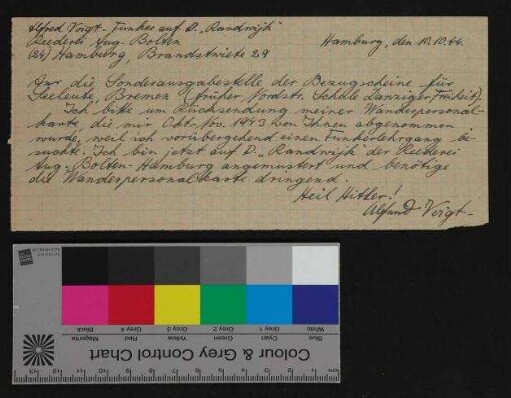 Alfred Voigt - Funker auf D. „Randwijk"
Reederei Aug. Bolten
(24) Hamburg, Brandstwiete 29
Hamburg, den 10.10.44.
An die Sonderausgabestelle der Bezugscheine für
Seeleute, Bremen (früher Nordstr. Schule Danziger Freiheit).
Ich bitte um Rücksendung meiner Wanderpersonal-
karte, die mir Okt.-Nov. 1943 von Ihnen abgenommen
wurde, weil ich vorübergehend einen Funkerlehrgang be-
suchte. Ich bin jetzt auf D. „Randwijk" der Reederei
Aug. Bolten Hamburg angemustert und benötige
die Wanderpersonalkarte dringend.
Heil Hitler!
Alfred Voigt.
Colour & Grey Control Chart
Blue Cyan Green Yellow Red Magenta
White Grey 1 Grey 2 Grey 3 Grey 4 Black